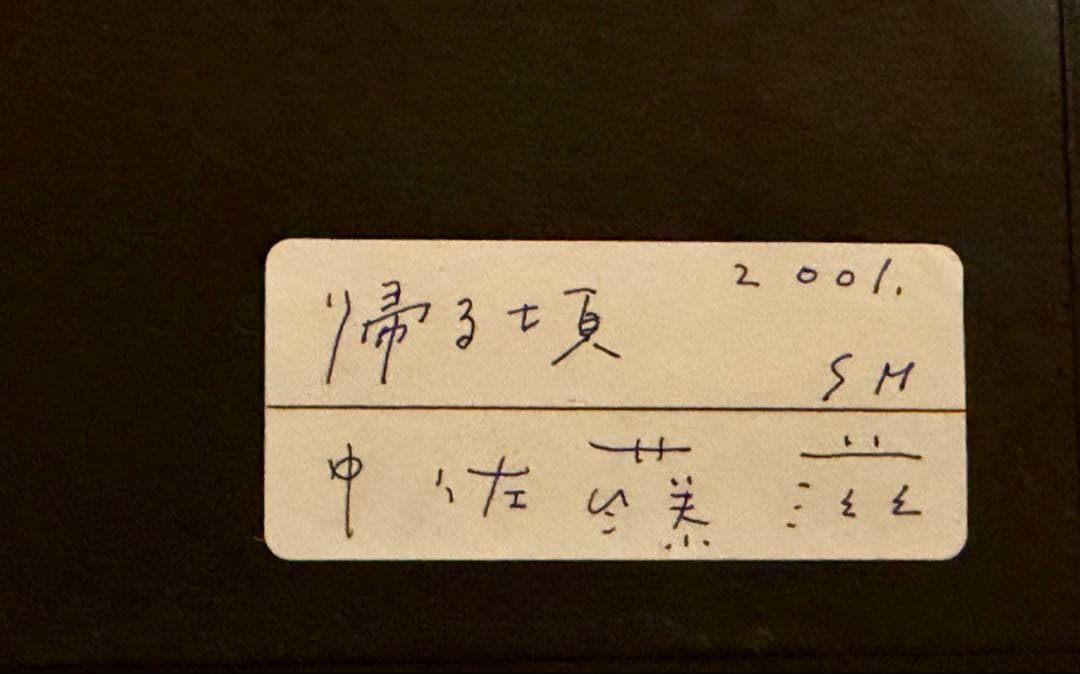 帰る頃 2001.
SM
中佐藤滋